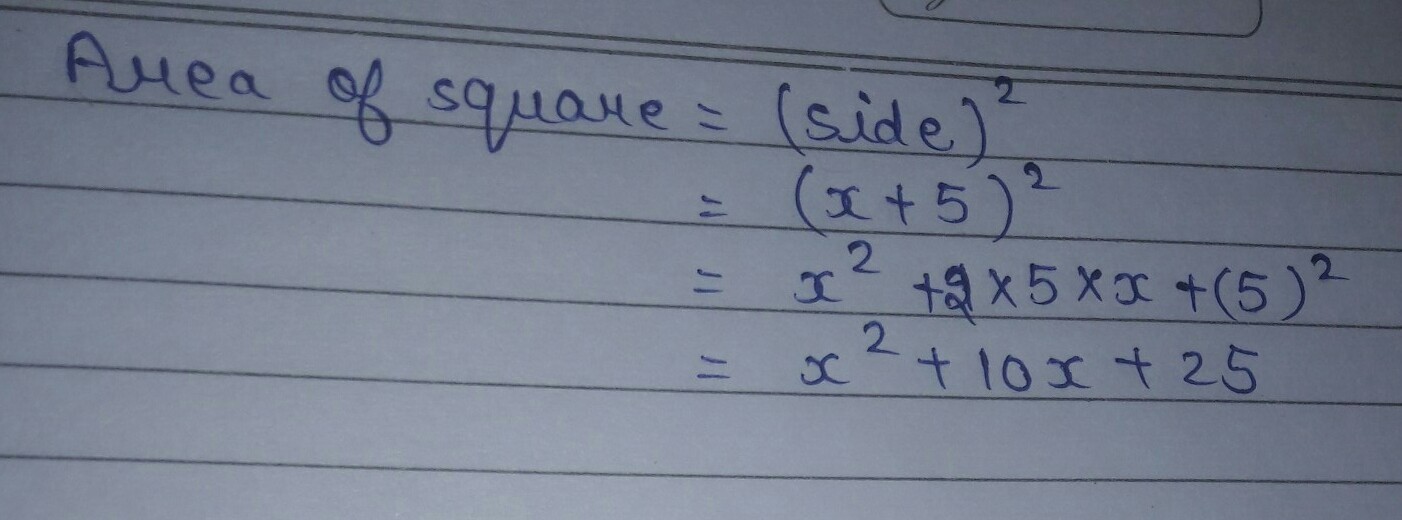 Area of square = (side)²
= (x + 5)²
= x² + 2 × 5 × x + (5)²
= x² + 10x + 25